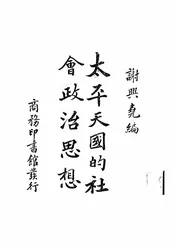 謝興堯編
太平天國的社
會政治思想
商務印書館發行